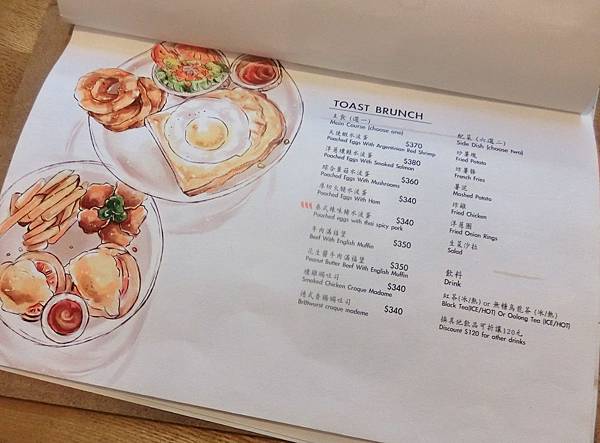 TOAST BRUNCH
主食 (選一)
Main Course (choose one)
天使蝦水波蛋
Poached Eggs With Argentinian Red Shrimp $370
洋蔥燻鮭水波蛋
Poached Eggs With Smoked Salmon $380
綜合蕈菇水波蛋
Poached Eggs With Mushrooms $360
厚切火腿水波蛋
Poached Eggs With Ham $340
泰式辣味豬水波蛋
Poached eggs with thai spicy pork $340
牛肉滿福堡
Beef With English Muffin $350
花生醬牛肉滿福堡
Peanut Butter Beef With English Muffin $350
燻雞焗吐司
Smoked Chicken Croque Madame $340
德式香腸焗吐司
Bratwurst croque madame $340
配菜 (六選二)
Side Dish (choose two)
炒薯塊
Fried Potato
炒薯條
French Fries
薯泥
Mashed Potato
炸雞
Fried Chicken
洋蔥圈
Fried Onion Rings
生菜沙拉
Salad
飲料
Drink
紅茶(冰/熱) or 無糖烏龍茶 (冰/熱)
Black Tea(ICE/HOT) Or Oolong Tea (ICE/HOT)
換其他飲品可折讓120元
Discount $120 for other drinks